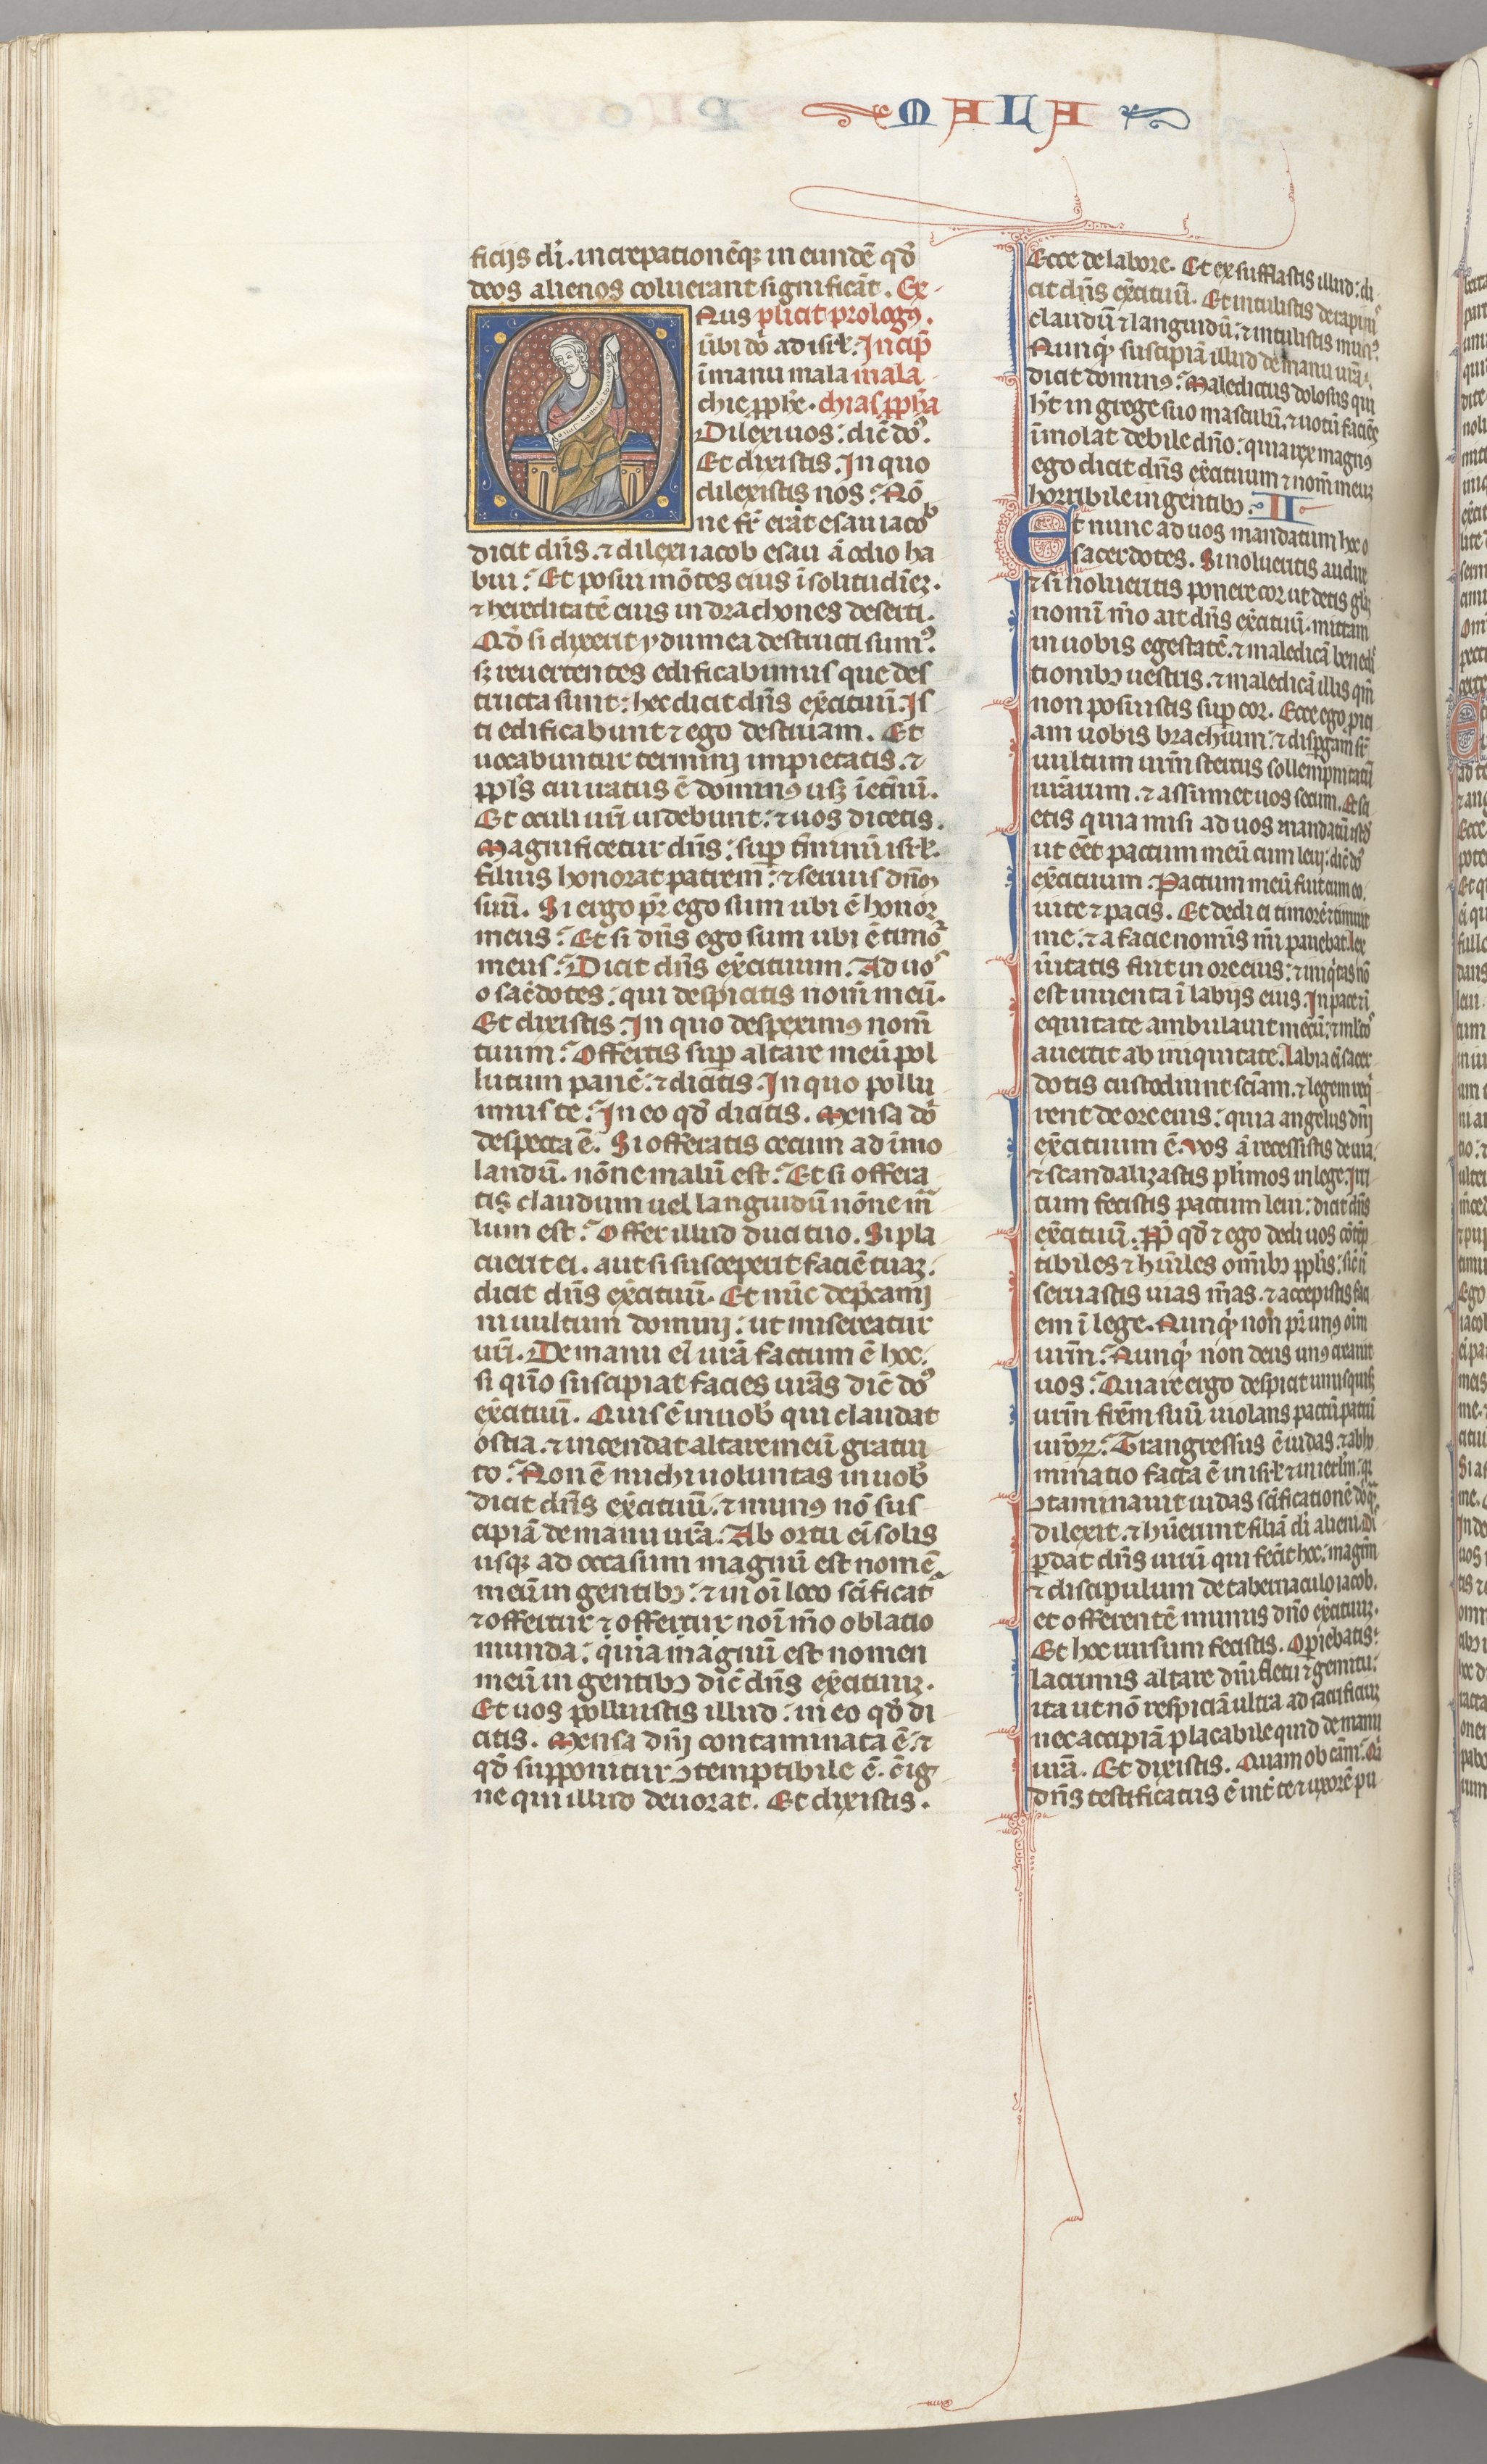 MALA
ficijs dī. increpationēq; in eundē qđ
deos alienos coluerant significāt. Ex-
Onus plicit prologꝯ.
ūbi dō ad isrł. Incip̄
ī manu mala mala-
chie ꝓph̄e. chias ꝓph̄a
Dilexi uos: dic̄ dōs.
Et dixistis. In quo
dilexistis nos? Nō
ne fr̄ erat esau iacob
dicit dn̄s. ⁊ dilexi iacob esau ā odio ha
bui? Et posui mōtes eius ī solitudinez.
⁊ hereditatē eius in drachones deserti.
Qđ si dixerit ydumea destructi sumꝰ.
sꝫ reuertentes edificabimus que des
tructa sunt: hec dicit dn̄s exc̄ituū. Is
ti edificabunt ⁊ ego destruam. Et
uocabuntur termini impietatis. ⁊
ppl̄s cui iratus ē dominꝰ usqꝫ ī et̄nū.
Et oculi ur̄i uidebunt: ⁊ uos dicetis.
Magnificetur dn̄s: sup̄ t̄minū isrł.
filius honorat patrem: ⁊ seruus dn̄m
suū. Si ergo pr̄ ego sum ubi ē honor
meus? Et si dn̄s ego sum ubi ē timor
meus? Dicit dn̄s exc̄ituum. Ad uos
o sac̄dotes: qui despicitis nom̄ meū.
Et dixistis. In quo despeximꝰ nom̄
tuum? Offertis sup̄ altare meū pol
lutum panē: ⁊ dicitis. In quo pollu
imus te? In eo qđ dicitis. Mensa dō
despecta ē. Si offeratis cecum ad īmo
landū. nōne malū est? Et si offera
tis claudum uel languidū nōne ma
lum est? Offer illud duci tuo. Si pla
cuerit ei. aut si susceperit faciē tuaꝫ.
dicit dn̄s exc̄ituū. Et nūc dep̄camī
ni uultum domini: ut misereatur
ur̄i. De manu eī ur̄a factum ē hoc.
si quō suscipiat facies ur̄as dic̄ dōs
exc̄ituū. Quis ē in uob̄ qui claudat
ostia. ⁊ incendat altare meū gratui
to? Non ē michi uoluntas in uob̄
dicit dn̄s exc̄ituū. ⁊ munꝰ nō sus
cipiā de manu ur̄a. Ab ortu eī solis
usqꝫ ad occasum magnū est nomē
meū in gentibꝫ: ⁊ in oī loco sc̄ificat̄
⁊ offertur ⁊ offertur noī mō oblatio
munda: quia magnū est nomen
meū in gentibꝫ dic̄ dn̄s exc̄ituuꝫ.
Et uos polluistis illud: in eo qđ di
citis. Mensa dn̄i contaminata ē: ⁊
qđ supponitur ↄtemptibile ē. c̄ ig
ne qui illud deuorat. Et dixistis.
Ecce de labore. Et exsufflastis illud: di
cit dn̄s exc̄ituū. Et intulistis de rapinis
claudū ⁊ languidū: ⁊ intulistis munꝰ.
Nunqͥd suscipiā illud de manu ur̄a:
dicit dominꝰ? Maledictus dolosus qui
h̄t in grege suo masculū. ⁊ uotū faciēs
īmolat debile dn̄o: quia rex magnꝰ
ego dicit dn̄s exc̄ituum ⁊ nom̄ meuꝫ
horribile in gentibꝫ. II
Et nunc ad uos mandatum hoc o
sacerdotes. Si nolueritis audire
⁊ si nolueritis ponere cor ut detis gl̄aꝫ
nomī mō ait dn̄s exc̄ituū. mittam
in uobis egestatē. ⁊ maledicā benedic
tionibꝫ uestris. ⁊ maledicā illis qm̄
non posuistis sup̄ cor. Ecce ego proici
am uobis brachium: ⁊ disꝑgam sr̄
uultum ur̄m stercus sollempnitatū
ur̄arum. ⁊ assumet uos secum. Et sci
etis quia misi ad uos mandatū istđ
ut eēt pactum meū cum leui: dic̄ dōs
exc̄ituum. Pactum meū fuit cum eo.
uite ⁊ pacis. Et dedi ei timorē ⁊ timuit
me: ⁊ a facie nom̄is mī pauebat. lex
ūitatis fuit in ore eius: ⁊ iniqͥtas nō
est inuenta ī labijs eius. In pace ⁊ ī
equitate ambulauit mecū: ⁊ ml̄tos
auertit ab iniquitate. labia eī sacer
dotis custodiunt sc̄iam. ⁊ legem reqͥ
rent de ore eius: quia angelus dn̄i
exc̄ituum ē. Vos ā recessistis de uia.
⁊ scandalizastis pl̄imos in lege. Irri
tum fecistis pactum leui: dicit dn̄s
exc̄ituū. Pp̄ qđ ⁊ ego dedi uos cōtēp
tibiles ⁊ hūiles om̄ibꝫ ppl̄is: sic̄ n̄
seruastis uias m̄as. ⁊ accepistis faci
em ī lege. Nunqͥd non pr̄ unꝰ oīm
ur̄m? Nunqͥd non deus unꝰ creauit
uos? Quare ergo despicit unusquisqꝫ
ur̄m fr̄em suū uiolans pactū patrū
ur̄orꝝ? Trangressus ē iudas. ⁊ abho
minatio facta ē in isrł ⁊ in ierl̄m: qꝛ
ↄtaminauit iudas sc̄ificationē dō qͣꝫ
dilexit. ⁊ hūerunt filiā dī alieni. Dis
ꝑdat dn̄s uirū qui fec̄it hoc: magr̄m
⁊ discipulum de tabernaculo iacob.
et offerentē munus dn̄o exc̄ituuꝫ.
Et hoc rursum fecistis. Operiebatis:
lacrimis altare dn̄i fletu ⁊ gemitu:
ita ut nō respiciā ultra ad sacrificiuꝫ
nec accipiā placabile quid de manu
ur̄a. Et dixistis. Quam ob cām? Qꝛ
dn̄s testificatus ē int̄ te ⁊ uxorē pu